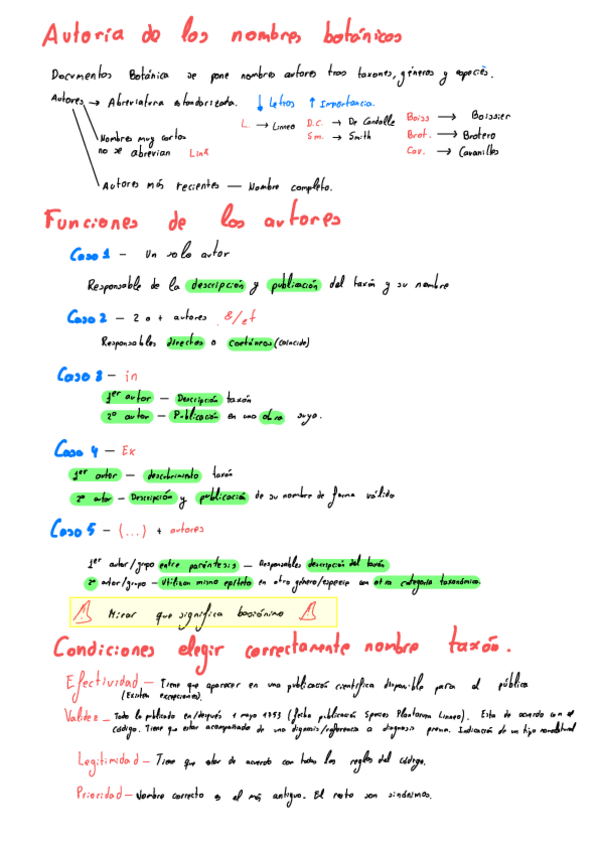 Autoría de los nombres botánicos
Documentos Botánica se pone nombres autores tras taxones, géneros y especies.
Autores → Abreviatura estandarizada. ↓ Letras ↑ Importancia.
L. → Linneo D.C. → De Candolle Boiss → Boissier
Sm. → Smith Brot. → Brotero
Cav. → Cavanilles
Nombres muy cortos
no se abrevian Link
Autores más recientes — Nombre completo.
Funciones de los autores
Caso 1 - Un solo autor
Responsable de la descripción y publicación del taxón y su nombre
Caso 2 - 2 o + autores &/et
Responsables directos o coetáneos (coincide)
Caso 3 - in
1er autor - Descripción taxón
2º autor - Publicación en una obra suya.
Caso 4 - Ex
1er autor - descubrimiento taxón
2º autor - Descripción y publicación de su nombre de forma válido
Caso 5 - (...) + autores
1er autor/grupo entre paréntesis - Responsables descripción del taxón
2º autor/grupo - Utilizan mismo epíteto en otro género/especie con otra categoría taxonómica.
Mirar que significa basiónimo
Condiciones elegir correctamente nombre taxón.
Efectividad - Tiene que aparecer en una publicación científica disponible para el público
(Existen excepciones).
Validez - Todo lo publicado en/después 1 mayo 1753 (fecha publicación Species Plantarum Linneo). Esta de acuerdo con el
código. Tiene que estar acompañado de una diagnosis/referencia a diagnosis previa. Indicación de un tipo nomenclatural
Legitimidad - Tiene que estar de acuerdo con todas las reglas del código.
Prioridad - Nombre correcto es el más antiguo. El resto son sinónimos.